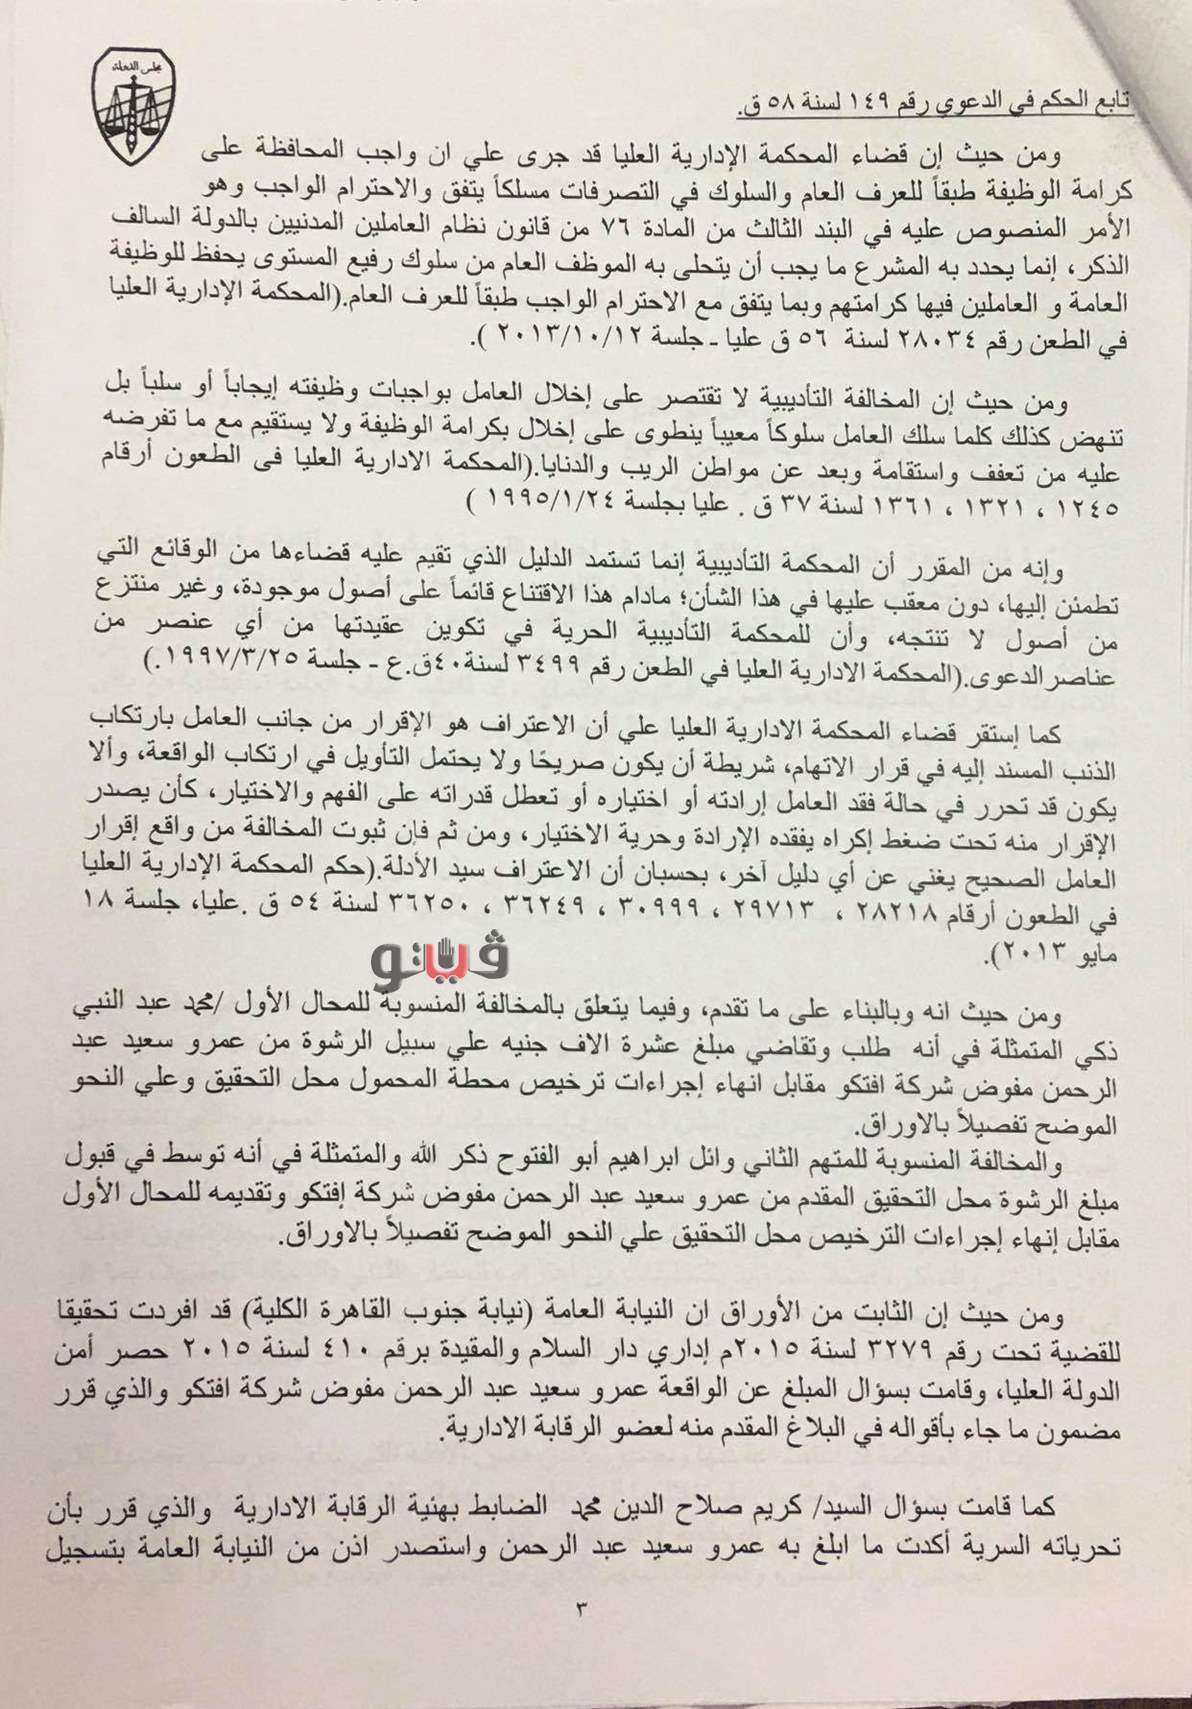 مجلس الدولة
تابع الحكم في الدعوي رقم ١٤٩ لسنة ٥٨ ق.
ومن حيث إن قضاء المحكمة الإدارية العليا قد جرى علي ان واجب المحافظة على
كرامة الوظيفة طبقاً للعرف العام والسلوك في التصرفات مسلكاً يتفق والاحترام الواجب وهو
الأمر المنصوص عليه في البند الثالث من المادة ٧٦ من قانون نظام العاملين المدنيين بالدولة السالف
الذكر، إنما يحدد به المشرع ما يجب أن يتحلى به الموظف العام من سلوك رفيع المستوى يحفظ للوظيفة
العامة و العاملين فيها كرامتهم وبما يتفق مع الاحترام الواجب طبقاً للعرف العام.(المحكمة الإدارية العليا
في الطعن رقم ٢٨٠٣٤ لسنة ٥٦ ق عليا ـ جلسة ٢٠١٣/١٠/١٢ ).
ومن حيث إن المخالفة التأديبية لا تقتصر على إخلال العامل بواجبات وظيفته إيجاباً أو سلباً بل
تنهض كذلك كلما سلك العامل سلوكاً معيباً ينطوى على إخلال بكرامة الوظيفة ولا يستقيم مع ما تفرضه
عليه من تعفف واستقامة وبعد عن مواطن الريب والدنايا.(المحكمة الادارية العليا فى الطعون أرقام
١٢٤٥ ، ١٣٢١ ، ١٣٦١ لسنة ٣٧ ق . عليا بجلسة ١٩٩٥/١/٢٤ )
وإنه من المقرر أن المحكمة التأديبية إنما تستمد الدليل الذي تقيم عليه قضاءها من الوقائع التي
تطمئن إليها، دون معقب عليها في هذا الشأن؛ مادام هذا الاقتناع قائماً على أصول موجودة، وغير منتزع
من أصول لا تنتجه، وأن للمحكمة التأديبية الحرية في تكوين عقيدتها من أي عنصر من
عناصرالدعوى.(المحكمة الادارية العليا في الطعن رقم ٣٤٩٩ لسنة٤٠ق.ع ـ جلسة ١٩٩٧/٣/٢٥.)
كما إستقر قضاء المحكمة الادارية العليا علي أن الاعتراف هو الإقرار من جانب العامل بارتكاب
الذنب المسند إليه في قرار الاتهام، شريطة أن يكون صريحًا ولا يحتمل التأويل في ارتكاب الواقعة، وألا
يكون قد تحرر في حالة فقد العامل إرادته أو اختياره أو تعطل قدراته على الفهم والاختيار، كأن يصدر
الإقرار منه تحت ضغط إكراه يفقده الإرادة وحرية الاختيار، ومن ثم فإن ثبوت المخالفة من واقع إقرار
العامل الصحيح يغني عن أي دليل آخر، بحسبان أن الاعتراف سيد الأدلة.(حكم المحكمة الإدارية العليا
في الطعون أرقام ٢٨٢١٨ ، ٢٩٧١٣ ، ٣٠٩٩٩ ، ٣٦٢٤٩ ، ٣٦٢٥٠ لسنة ٥٤ ق .عليا، جلسة ١٨
مايو ٢٠١٣).
ڤيتو
ومن حيث انه وبالبناء على ما تقدم، وفيما يتعلق بالمخالفة المنسوبة للمحال الأول /محمد عبد النبي
ذكي المتمثلة في أنه طلب وتقاضي مبلغ عشرة الاف جنيه علي سبيل الرشوة من عمرو سعيد عبد
الرحمن مفوض شركة افتكو مقابل انهاء إجراءات ترخيص محطة المحمول محل التحقيق وعلي النحو
الموضح تفصيلاً بالاوراق.
والمخالفة المنسوبة للمتهم الثاني وائل ابراهيم أبو الفتوح ذكر الله والمتمثلة في أنه توسط في قبول
مبلغ الرشوة محل التحقيق المقدم من عمرو سعيد عبد الرحمن مفوض شركة إفتكو وتقديمه للمحال الأول
مقابل إنهاء إجراءات الترخيص محل التحقيق علي النحو الموضح تفصيلاً بالاوراق.
ومن حيث إن الثابت من الأوراق ان النيابة العامة (نيابة جنوب القاهرة الكلية) قد افردت تحقيقا
للقضية تحت رقم ٣٢٧٩ لسنة ٢٠١٥م إداري دار السلام والمقيدة برقم ٤١٠ لسنة ٢٠١٥ حصر أمن
الدولة العليا، وقامت بسؤال المبلغ عن الواقعة عمرو سعيد عبد الرحمن مفوض شركة افتكو والذي قرر
مضمون ما جاء بأقواله في البلاغ المقدم منه لعضو الرقابة الادارية.
كما قامت بسؤال السيد/ كريم صلاح الدين محمد الضابط بهئية الرقابة الادارية والذي قرر بأن
تحرياته السرية أكدت ما ابلغ به عمرو سعيد عبد الرحمن واستصدر اذن من النيابة العامة بتسجيل
٣